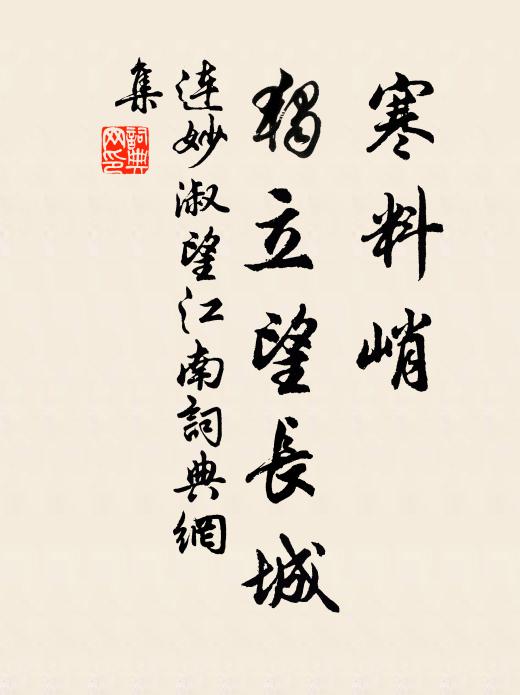 寒料峭
獨立望長城
連妙淑望江南詞典網
集
詞典
網印